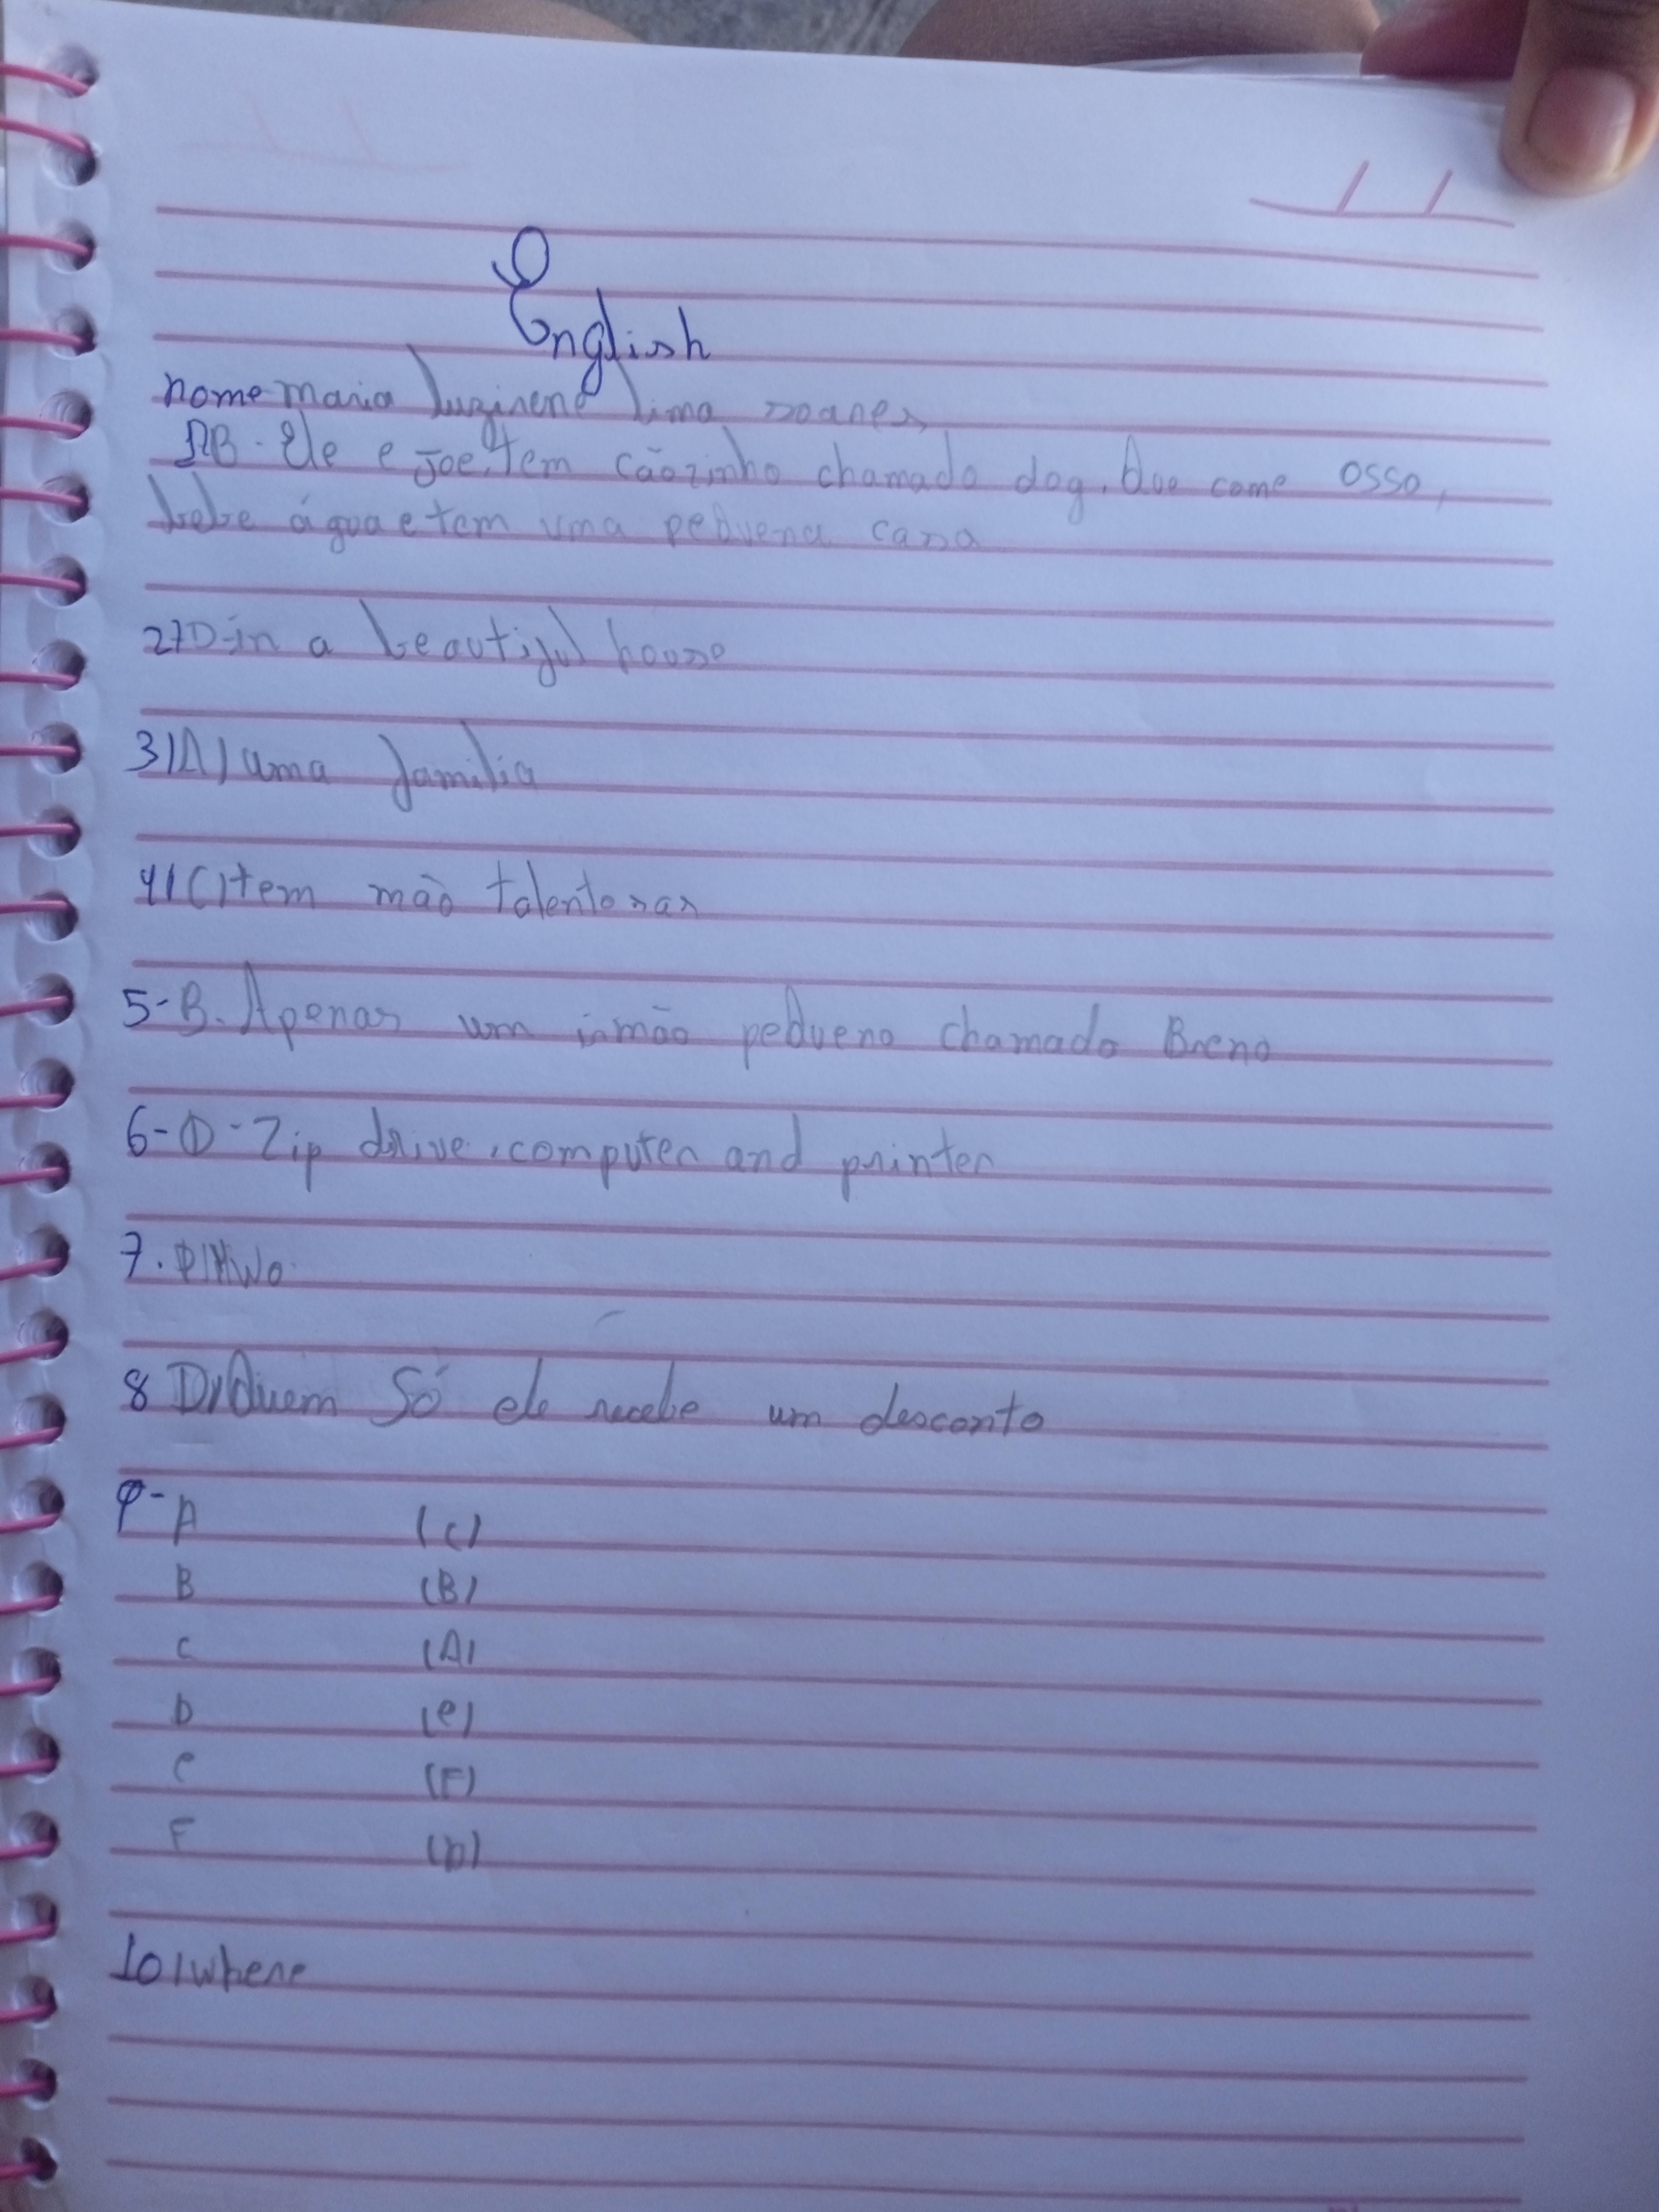 English
nome maria luzirene lima soares
1)B. Ele e Joe. tem cãozinho chamado dog. Que come osso,
bebe água e tem uma pequena casa
2) D-in a beautiful house
3) A) uma familia
4) C) tem mão talentosas
5-B. Apenas um irmão pequeno chamado Breno
6-D-Zip drive, computer and printer
7.
8 D) Quem Só ele recebe um desconto
9- A (C)
B (B)
C (A)
D (e)
e (F)
F (D)
10) where